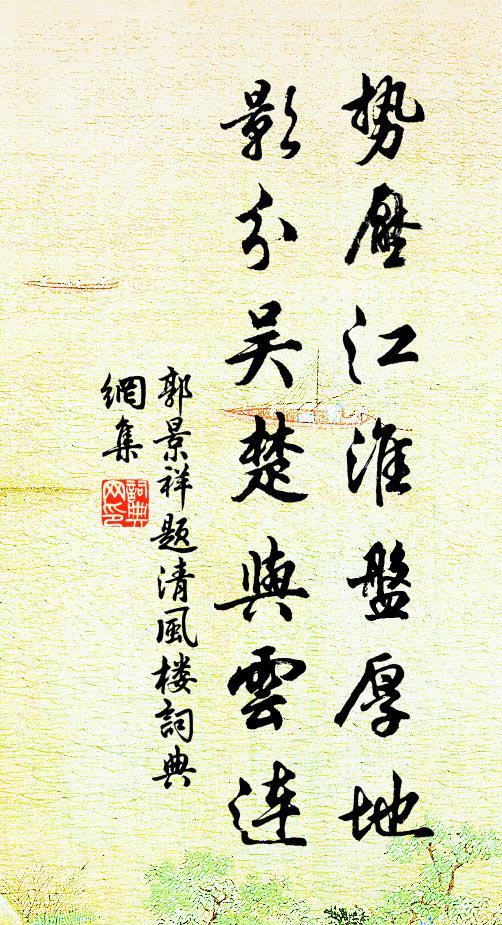 势壓江淮盤厚地
影分吴楚與雲連
郭景祥题清風楼詞典
網集
詞典
网印